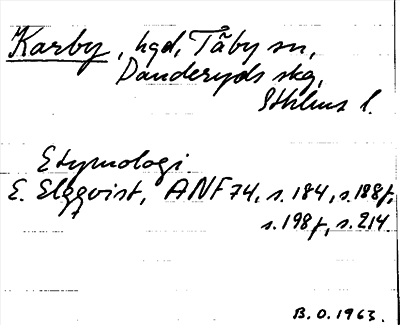 Karby, hgd, Täby sn,
Danderyds skg,
Sthlms l.
Etymologi
E. Elgqvist, ANF 74, s. 184, s. 188f,
s. 198f, s. 214.
B.O. 1963.